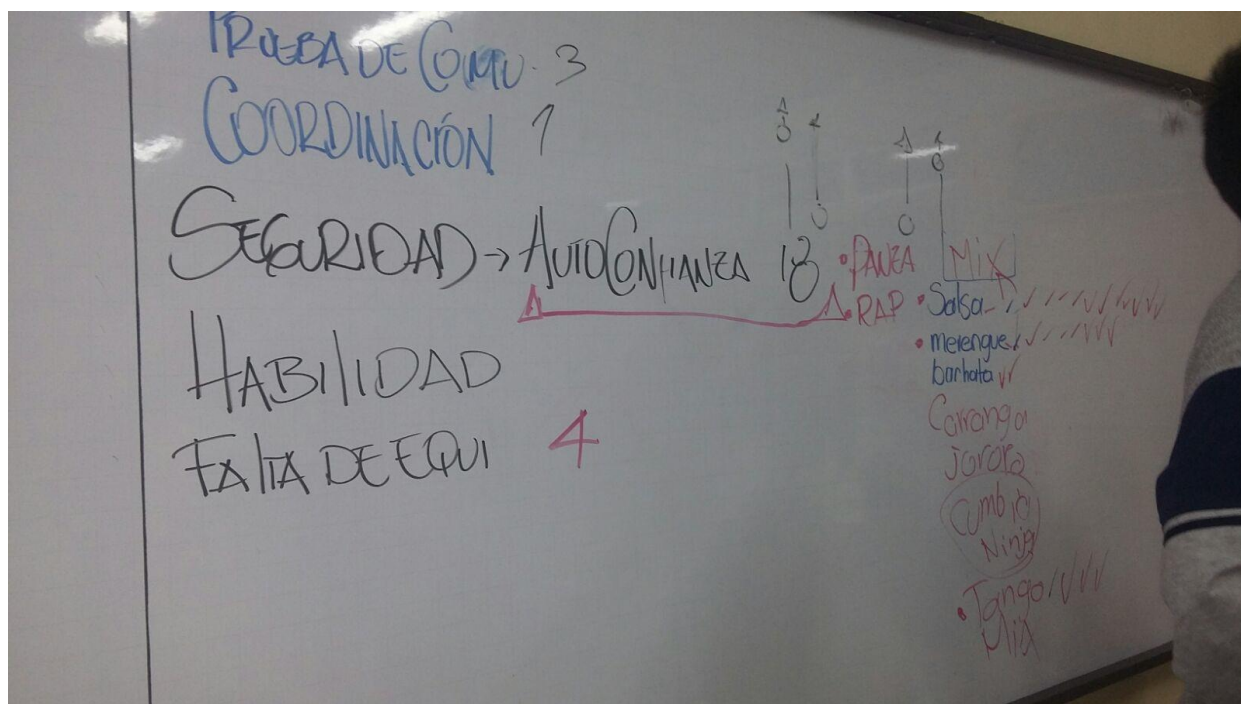 PRUEBA DE COMU. 3
COORDINACIÓN 1
SEGURIDAD → AUTOCONFIANZA 18
HABILIDAD
FALTA DE EQUI 4
• DANZA
• RAP
Mix
• Salsa
• merengue
bachata
Carranga
Joropo
Cumbia
Ninja
• Tango
Mix